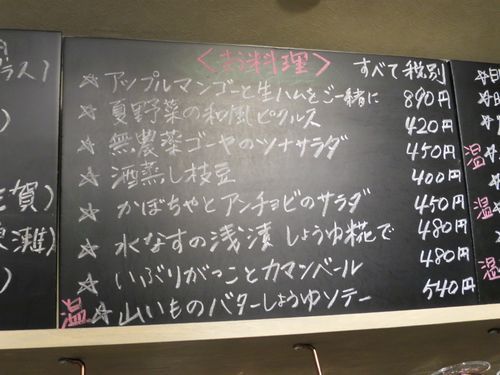 <お料理> すべて税別
☆ アップルマンゴーと生ハムをご一緒に 890円
☆ 夏野菜の和風ピクルス 420円
☆ 無農薬ゴーヤのツナサラダ 450円
☆ 酒蒸し枝豆 400円
☆ かぼちゃとアンチョビのサラダ 450円
☆ 水なすの浅漬 しょうゆ糀で 480円
☆ いぶりがっことカマンベール 480円
温☆ 山いものバターしょうゆソテー 540円
グラス)
賀)
灘)
温
温
温